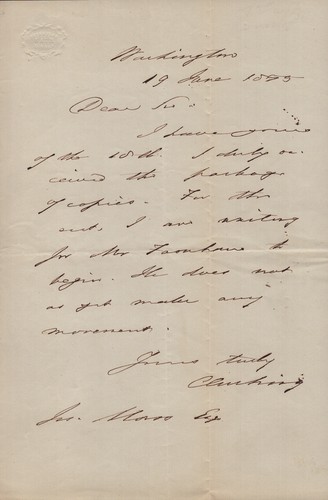 Washington
19 June 1845
Dear Sir.
I have yours
of the 18th. I duly re-
ceived the package
of copies. For the
rest, I am waiting
for Mr to
begin. He does not
as yet make any
movement.
Yours truly
C Cushing
Moss Esq